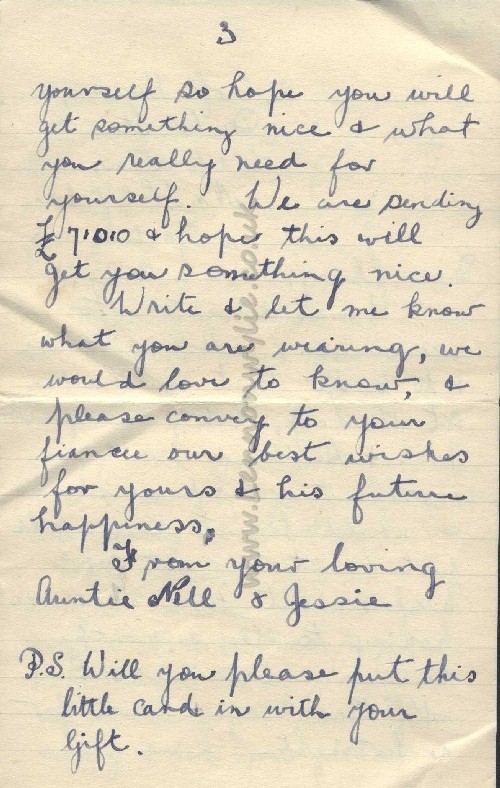 3
yourself so hope you will
get something nice & what
you really need for
yourself. We are sending
£7"0"0 & hope this will
get you something nice.
Write & let me know
what you are wearing, we
would love to know, &
please convey to your
fiancee our best wishes
for yours & his future
happiness.
From your loving
Auntie Nell & Jessie
P.S. Will you please put this
little card in with your
Gift.